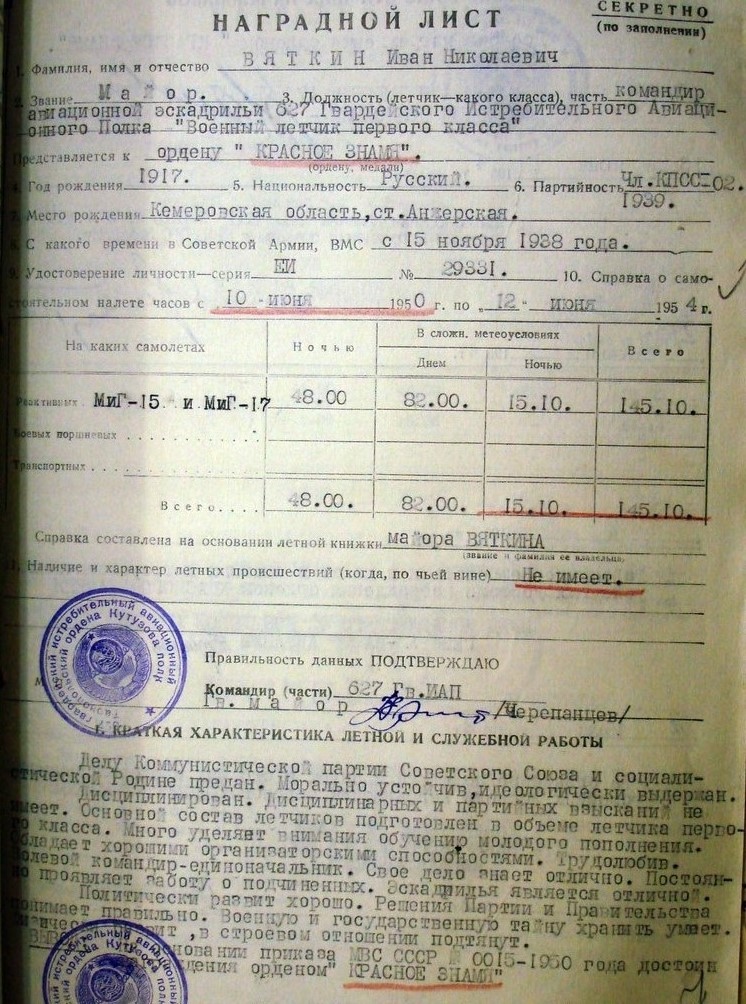 СЕКРЕТНО
(по заполнении)
НАГРАДНОЙ ЛИСТ
1. Фамилия, имя и отчество ВЯТКИН Иван Николаевич
2. Звание Майор. 3. Должность (летчик—какого класса), часть командир
авиационной эскадрильи 627 Гвардейского Истребительного Авиаци-
онного Полка "Военный летчик первого класса"
Представляется к ордену " КРАСНОЕ ЗНАМЯ".
(ордену, медали)
4. Год рождения 1917. 5. Национальность Русский. 6. Партийность Чл.КПСС-02.
1939.
7. Место рождения Кемеровская область,ст.Анжерская.
8. С какого времени в Советской Армии, ВМС с 15 ноября 1938 года.
9. Удостоверение личности—серия ЕИ № 29331. 10. Справка о само-
стоятельном налете часов с 10 -июня 1950 г. по „12" июня 1954 г.
На каких самолетах Ночью В сложн. метеоусловиях Всего
Днем Ночью
Реактивных МиГ-15 и МиГ-17 48.00 82.00. 15.10. 145.10.
Боевых поршневых
Транспортных
Всего 48.00. 82.00. 15.10. 145.10.
Справка составлена на основании летной книжки майора ВЯТКИНА
(звание и фамилия ее владельца)
11. Наличие и характер летных происшествий (когда, по чьей вине) Не имеет.
Правильность данных ПОДТВЕРЖДАЮ
Командир (части) 627 Гв.ИАП
Гв. майор /Черепанцев/
I. КРАТКАЯ ХАРАКТЕРИСТИКА ЛЕТНОЙ И СЛУЖЕБНОЙ РАБОТЫ
Делу Коммунистической партии Советского Союза и социали-
стической Родине предан. Морально устойчив,идеологически выдержан.
Дисциплинирован. Дисциплинарных и партийных взысканий не
имеет. Основной состав летчиков подготовлен в объеме летчика перво-
го класса. Много уделяет внимания обучению молодого пополнения.
Обладает хорошими организаторскими способностями. Трудолюбив.
Волевой командир-единоначальник. Свое дело знает отлично. Постоян-
но проявляет заботу о подчиненных. Эскадрилья является отличной.
Политически развит хорошо. Решения Партии и Правительства
понимает правильно. Военную и государственную тайну хранить умеет.
,в строевом отношении подтянут.
основании приказа МВС СССР № 0015-1950 года достоин
орденом" КРАСНОЕ ЗНАМЯ"